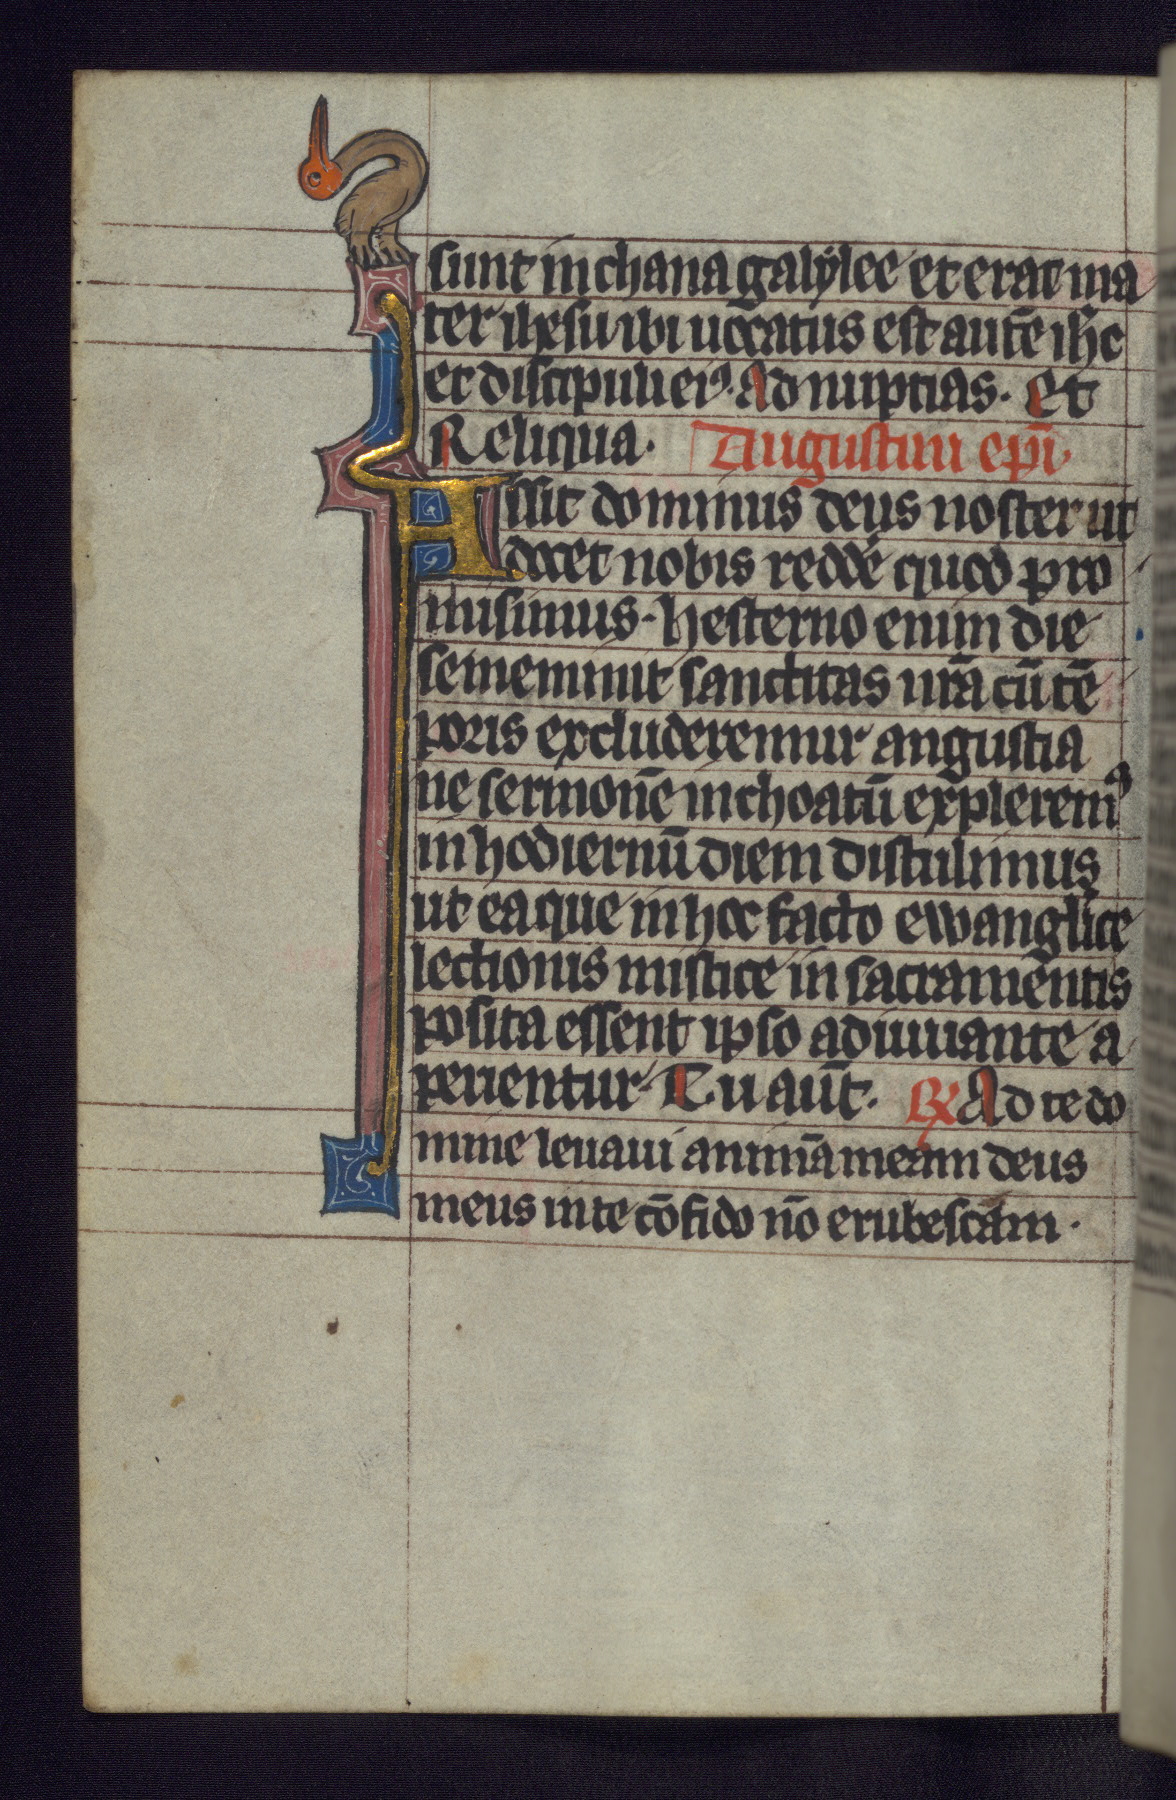 sunt in chana galylee et erat ma
ter ihesu ibi uocatus est autē ih̄c
et discipuli eiꝰ. Ad nuptias. Et
Reliqua. Augustini ep̄i.
Assit dominus deus noster ut
docet nobis reddē quod pro
misimus. hesterno enim die
se meminit sanctitas ur̄a cū tē
poris excluderemur angustia
ne sermonē inchoatū expleremꝰ
in hodiernū diem distulimus
ut ea que in hoc facto ewanglice
lectionis mistice in sacramentis
posita essent ipso adiuuante a
perientur. Tu aut̄. R̸ Ad te do
mine leuaui animā meam deus
meus in te cōfido nō erubescam.